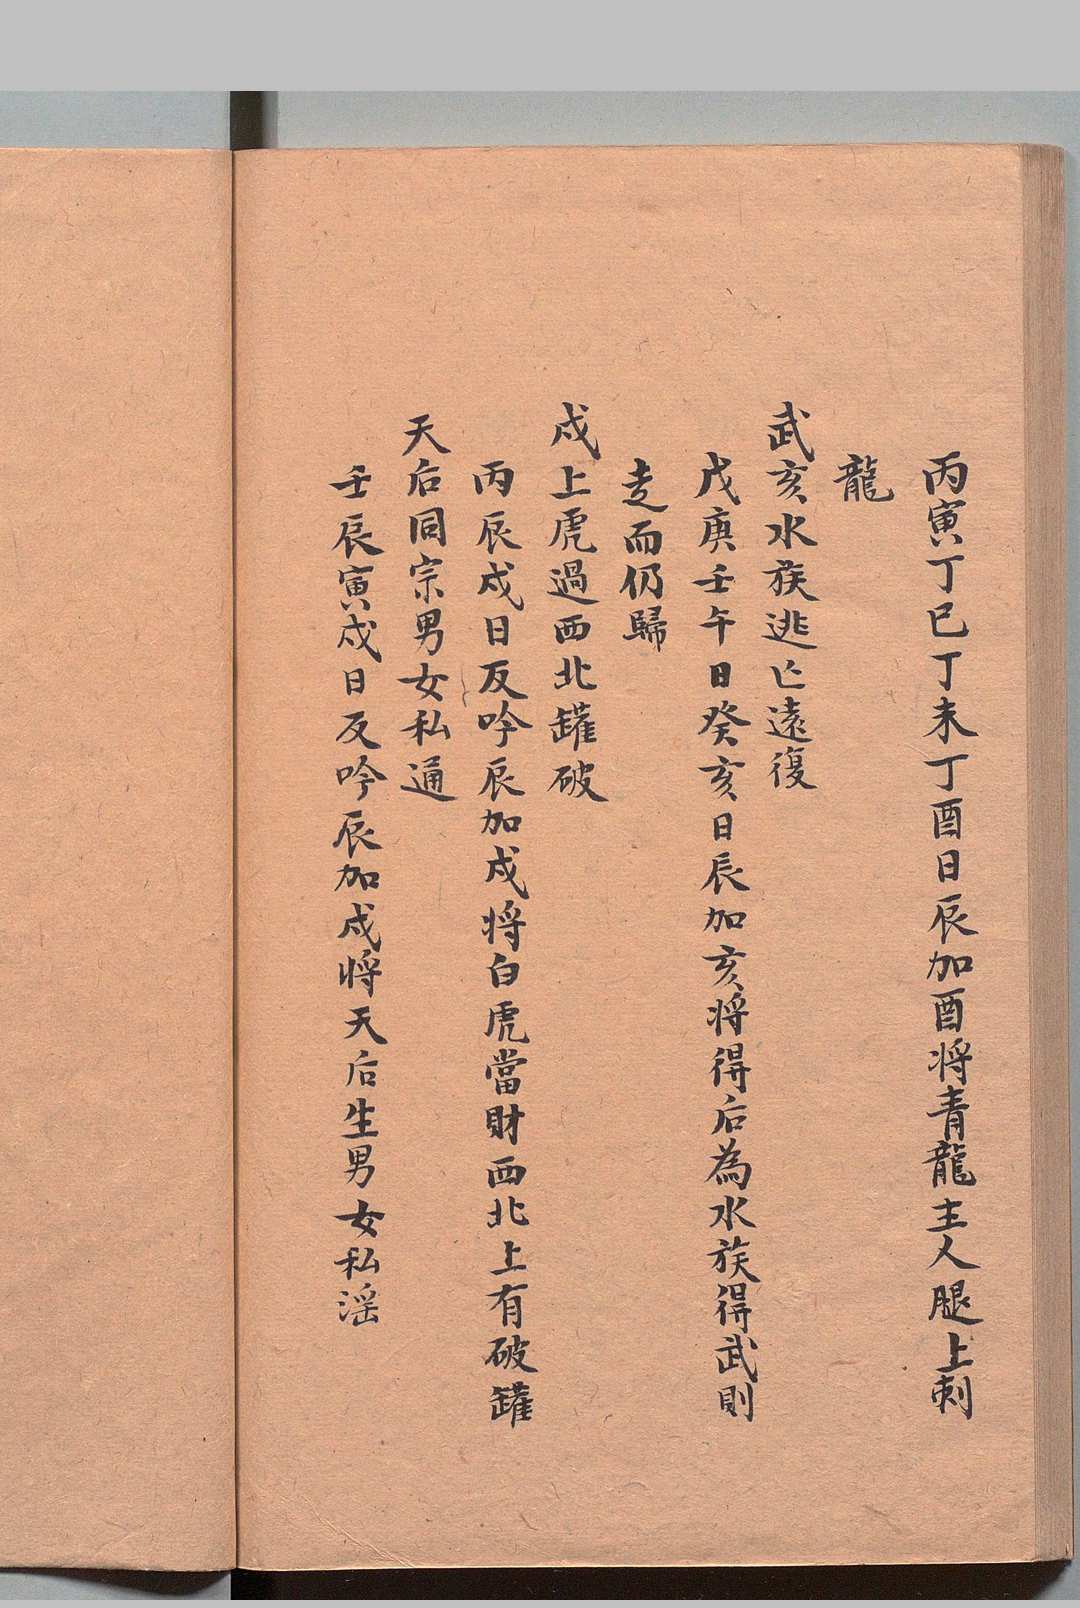 丙寅丁巳丁未丁酉日辰加酉將青龍主人腿上刺
龍
武亥水族逃亡遠復
戊庚壬午日癸亥日辰加亥將得后為水族得武則
走而仍歸
戍上虎過西北罐破
丙辰戍日反吟辰加戍將白虎當財西北上有破罐
天后同宗男女私通
壬辰寅戍日反吟辰加戍將天后生男女私淫